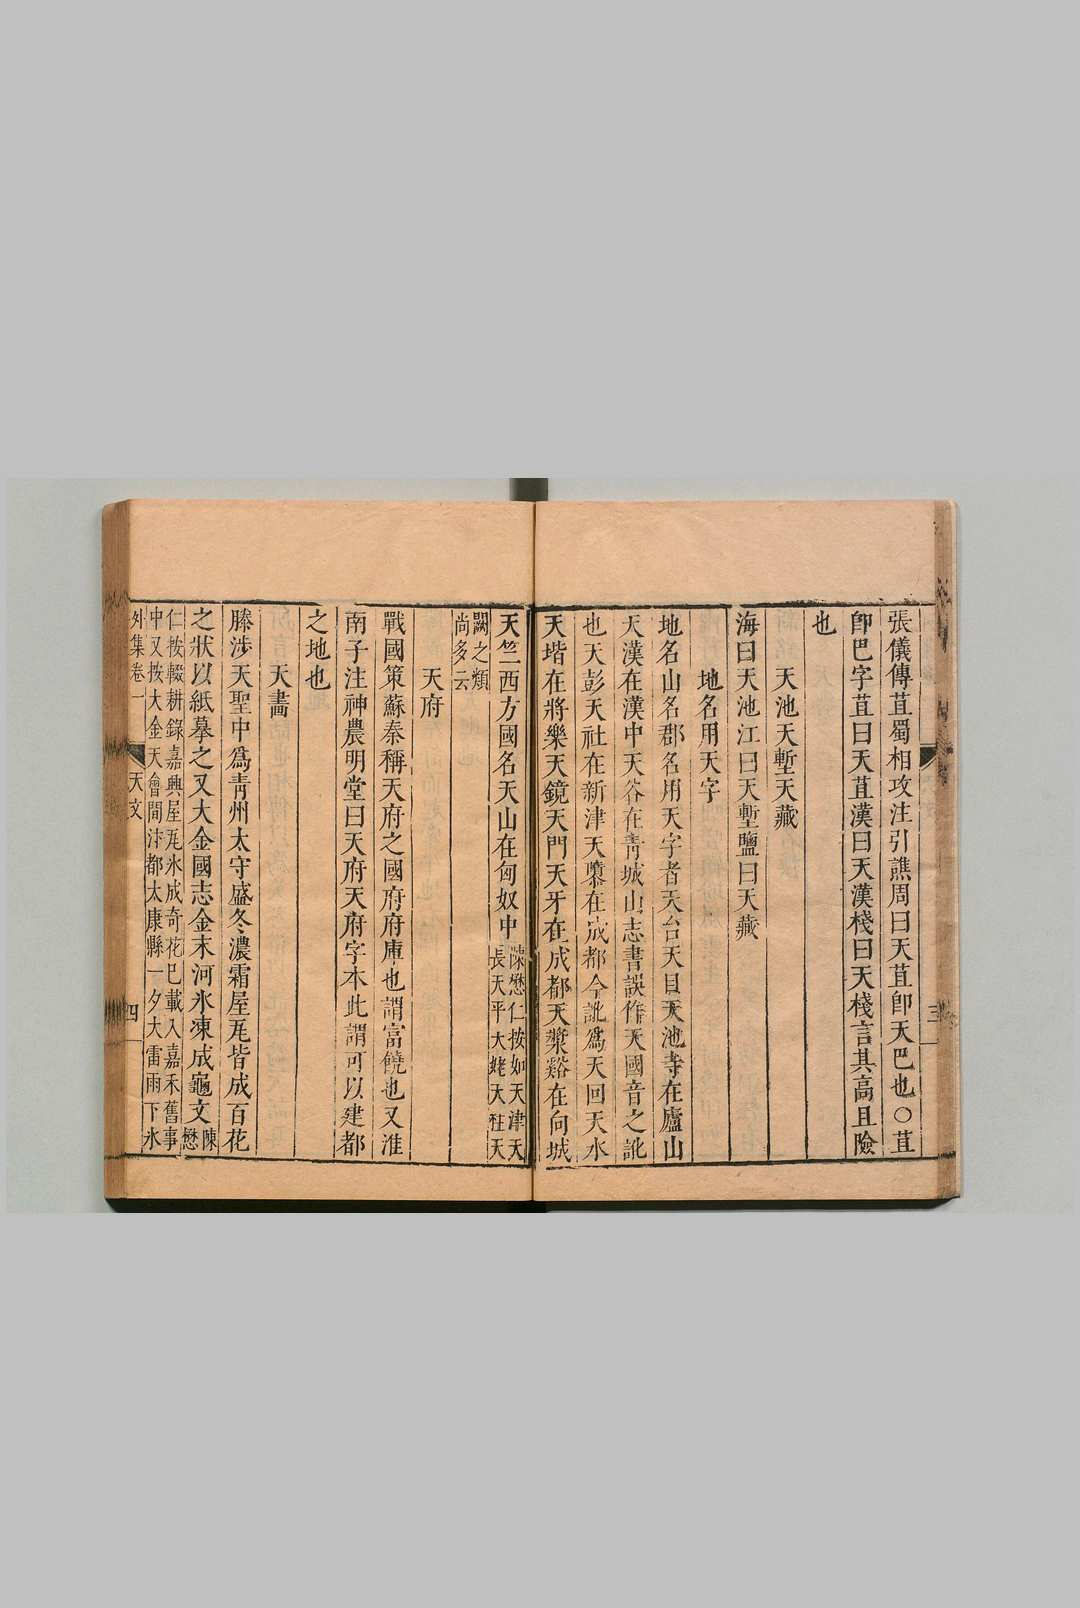 張儀傳苴蜀相攻注引譙周曰天苴卽天巴也○苴
卽巴字苴曰天苴漢曰天漢棧曰天棧言其高且險
也
天池天塹天藏
海曰天池江曰天塹鹽曰天藏
地名用天字
地名山名郡名用天字者天台天目天池寺在廬山
天漢在漢中天谷在靑城山志書誤作天國音之訛
也天彭天社在新津天𡺸在成都今訛爲天回天水
天堦在將樂天鏡天門天牙在成都天漿谿在向城
天竺西方國名天山在匈奴中陳懋仁按如天津天
長天平大姥大社天
闕之類
尚多云
天府
戰國策蘇秦稱天府之國府府庫也謂富饒也又淮
南子注神農明堂曰天府天府字本此謂可以建都
之地也
天畵
滕涉天聖中爲靑州太守盛冬濃霜屋瓦皆成百花
之狀以紙摹之又大金國志金末河氷凍成龜文陳
懋
仁按輟耕錄嘉興屋瓦氷成奇花巳載入嘉禾舊事
中又按大金天會間汴都太康縣一夕大雷雨下氷
外集卷一
天文
四
三